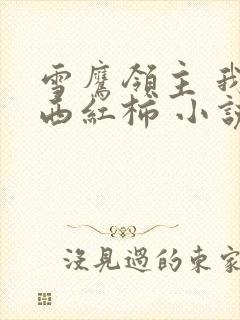 雪鹰領主 我
西紅柿 小説
没見過的東家